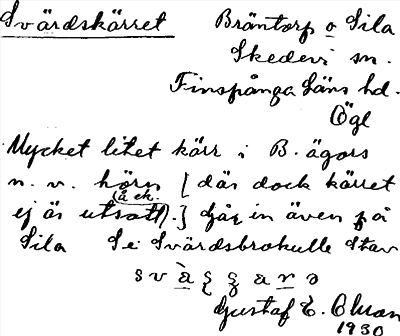 Svärdskärret Bräntorp o Sila
Skedevi sn.
Finspånga läns hd.
Ögl
Mycket litet kärr i B. ägors
n. v. hörn [där dock kärret
(å ek.
ej är utsatt).] Går in även på
Sila Se Svärdsbrokulle
1930